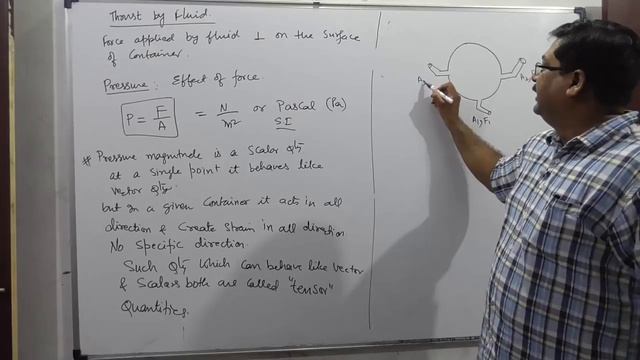 Thrust by Fluid
Force applied by fluid ⊥ on the surface
of Container.
Pressure : Effect of force.
P = F/A = N/m² or Pascal (Pa)
S.I
# Pressure magnitude is a Scalar Qty
at a single point it behaves like
vector Qty.
but In a given Container it acts in all
direction & Create Strain in all direction
No Specific direction.
Such Qty which can behave like vector
& Scalars both are called "tensor"
Quantities.
A₁, F₁